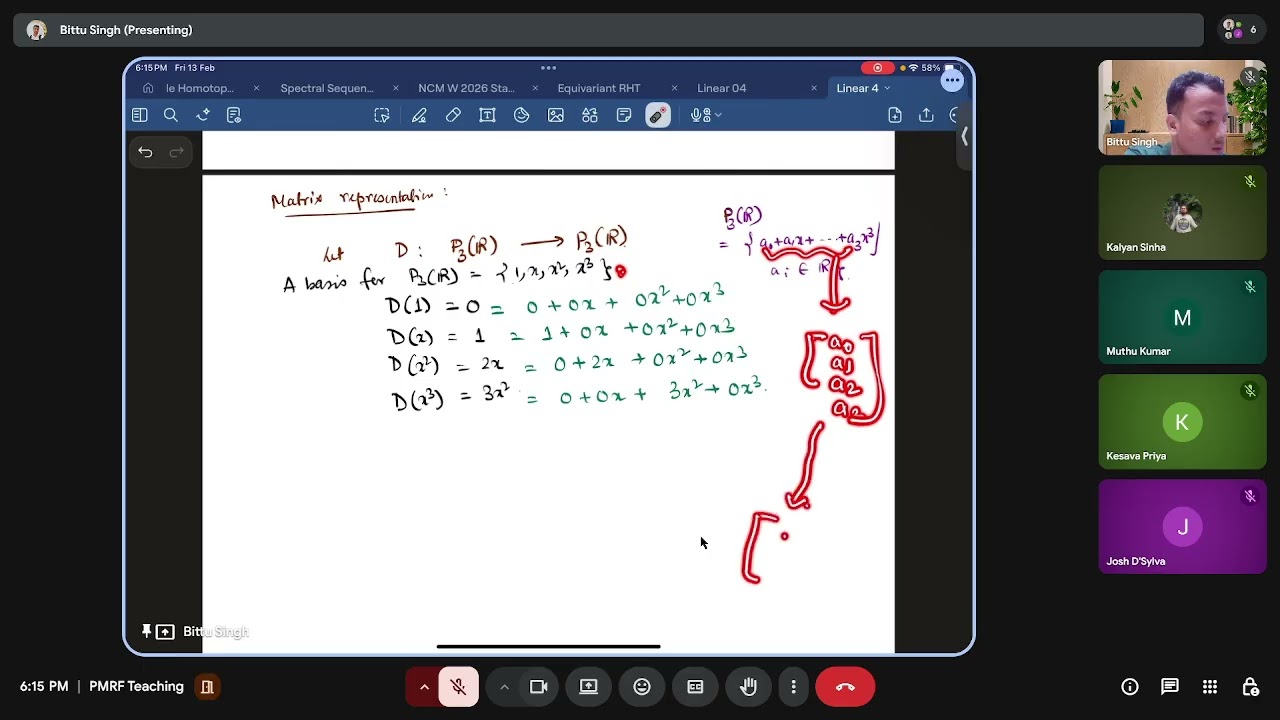 Bittu Singh (Presenting)
6
6:15 PM Fri 13 Feb
58%
le Homotop...
Spectral Sequen...
NCM W 2026 Sta...
Equivariant RHT
Linear 04
Linear 4
Matrix representation :
Let D : P₃(ℝ) → P₃(ℝ)
A basis for P₃(ℝ) = { 1, x, x², x³ }
D(1) = 0 = 0 + 0x + 0x² + 0x³
D(x) = 1 = 1 + 0x + 0x² + 0x³
D(x²) = 2x = 0 + 2x + 0x² + 0x³
D(x³) = 3x² = 0 + 0x + 3x² + 0x³.
P₃(ℝ)
= { a₀+a₁x+ ... +a₃x³ |
aᵢ ∈ ℝ }.
[ a₀
a₁
a₂
a₂ ]
[
Bittu Singh
Bittu Singh
Kalyan Sinha
M
Muthu Kumar
K
Kesava Priya
J
Josh D'Sylva
6:15 PM | PMRF Teaching